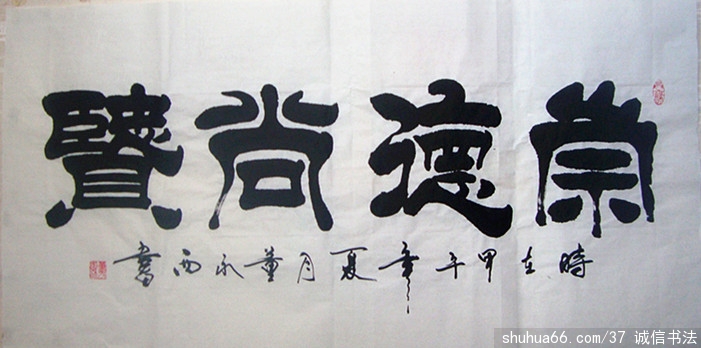 崇德尚賢
時在甲午年夏月董永西書
shuhua66.com/37 诚信书法